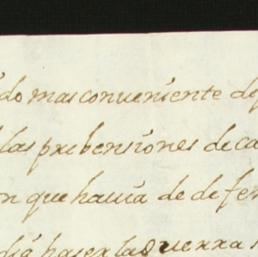 ido mas conveniente de
las prebensiones de ca
n que havia de defen
dia haser la guerra